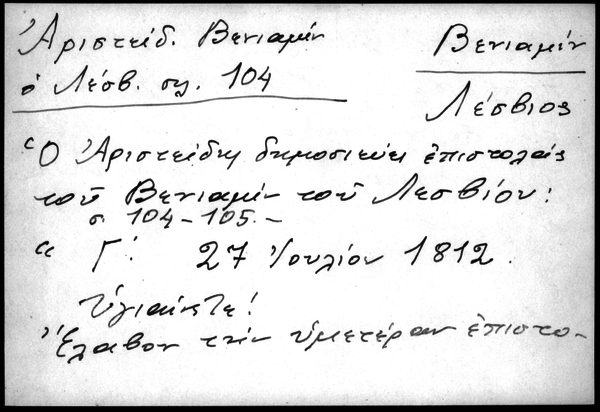 Ἀριστείδ. Βενιαμίν
ὁ Λέσβ. σελ. 104
Βενιαμίν
Λέσβιος
"Ὁ Ἀριστείδης δημοσιεύει ἐπιστολάς
τοῦ Βενιαμίν τοῦ Λεσβίου:
σ. 104-105.-
" Γ΄. 27 Ἰουλίου 1812.
Ὑγιαίνετε!
Ἔλαβον τὴν ὑμετέραν ἐπιστο-